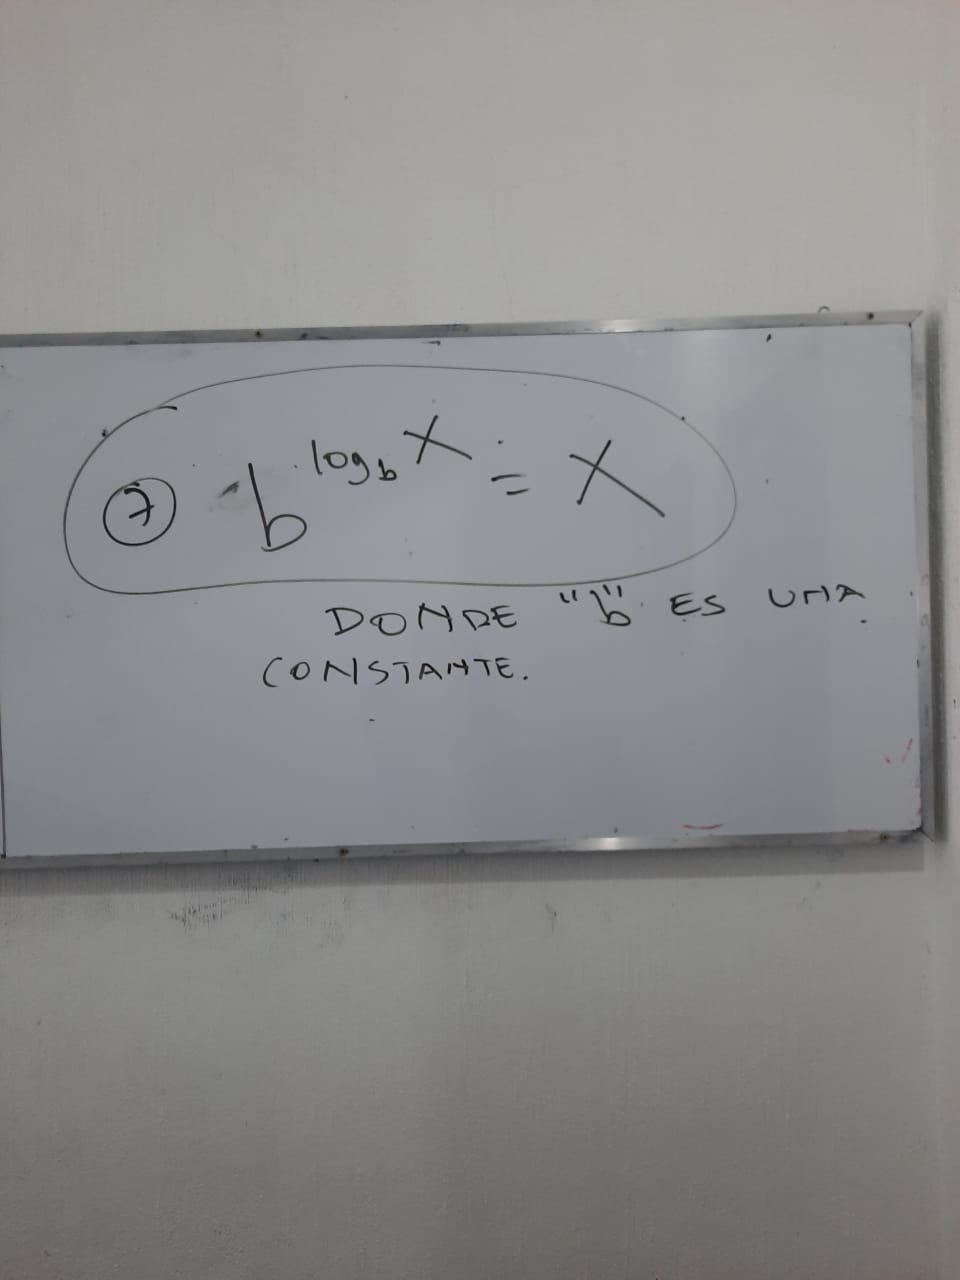 ⑦ b^log_b X = X
DONDE "b" ES UNA
CONSTANTE.